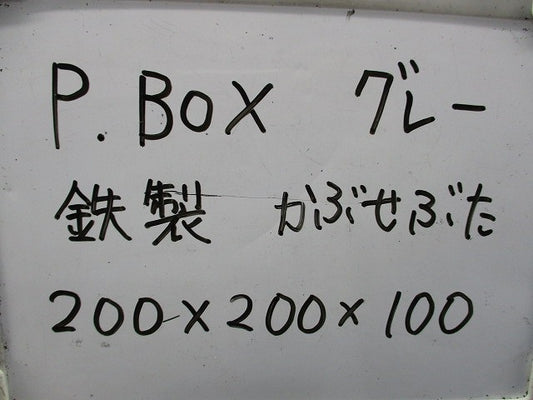 P.BOX グレー
鉄製 かぶせぶた
200×200×100